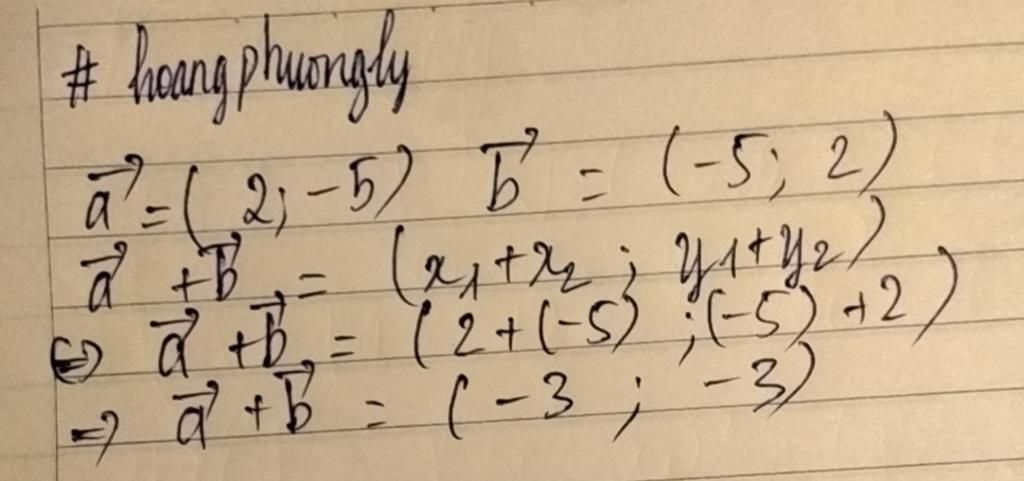 # hoangphuongly
$\vec{a} = (2; -5)$ $\vec{b} = (-5; 2)$
$\vec{a} + \vec{b} = (x_1 + x_2; y_1 + y_2)$
$\Leftrightarrow \vec{a} + \vec{b} = (2 + (-5); (-5) + 2)$
$\Rightarrow \vec{a} + \vec{b} = (-3; -3)$